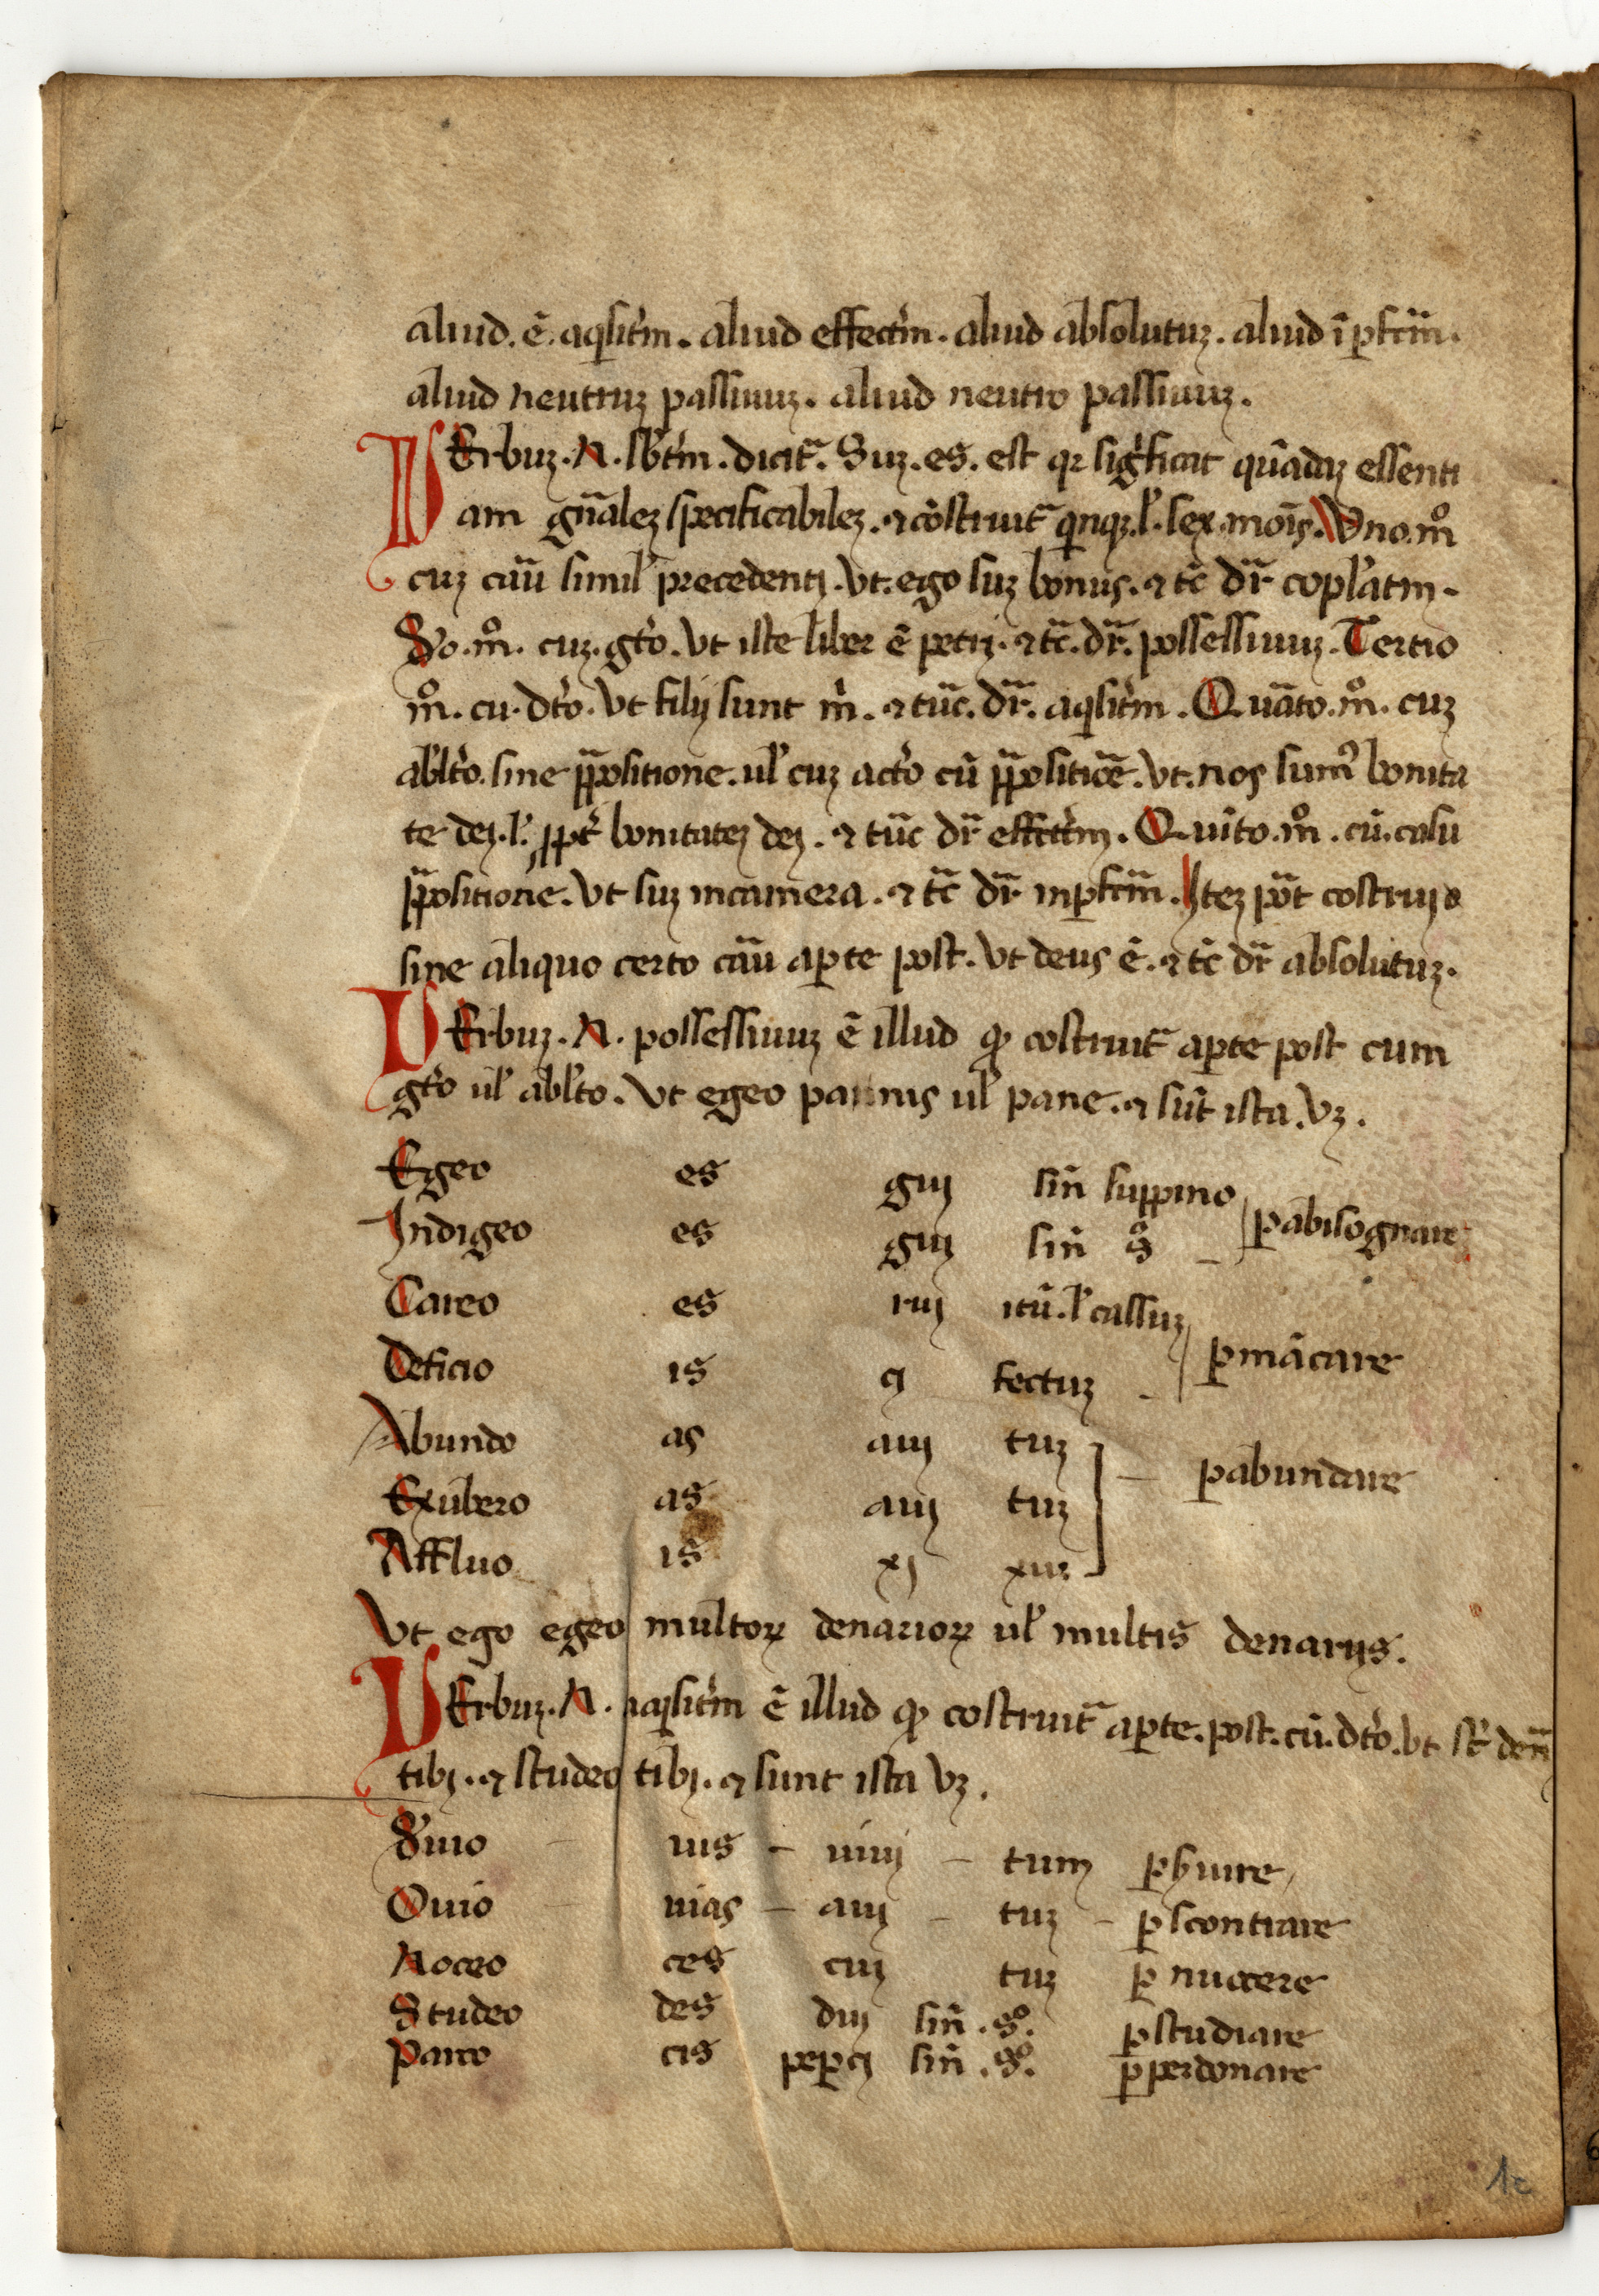 aliud. ē. aq̄sitīm. aliud effectīm. aliud absolutuꝫ. aliud īpfcīm.
aliud neutruꝫ passiuuꝫ. aliud neutro passiuuꝫ.
VErbuꝫ. N. sb̄tīm. dicit᷑. Suꝫ. es. est qꝛ sigīficat quādaꝫ essenti
am gn̄aleꝫ specificabileꝫ. ⁊ cōstruit᷑ qīnqꝫ. l̓. sex. moīs. Vno. mͦ
cuꝫ cāu simil̓ precedentj. vt. ego suꝫ bonus. ⁊ tc̄ dr̄ copl̓atm.
So. mͦ. cuꝫ. gt̓o. vt iste liber ē petrj. ⁊ tc̄. dr̄. possessiuuꝫ. Tertio
mͦ. cu. dt̓o. vt filij sunt m̓. ⁊ tūc. dr̄. aq̄sitīm. Quāto. mͦ. cuꝫ
abl̓to. sine p̄positione. ul̓ cuꝫ act̓o cū p̄positiōe. vt. nos sumꝰ bonita
te dej. l̓. ꝓpt̓ bonitateꝫ dej. ⁊ tūc dr̄ effcīm. Quīto. mͦ. cū. casu
p̄positione. vt suꝫ incamera. ⁊ tc̄ dr̄ inpfcīm. Iteꝫ pōt costruj
sine aliquo certo cāu aꝑte post. vt deus ē. ⁊ tc̄ dr̄ absolutuꝫ.
VErbuꝫ. N. possessiuuꝫ ē illud qͦ costruit᷑ aꝑte post cum
gt̓o ul̓ abl̓to. vt egeo pannis ul̓ pane. ⁊ sūt ista. vꝫ.
Egeo es guj sin̄ suppino
Indigeo es guj sin̄ sͦ ꝑabisognare
Careo es ruj itū. l̓ cassuꝫ
Deficio is cj fectuꝫ ꝑmācare
Abundo as auj tuꝫ
Exubero as auj tuꝫ ꝑabundare
Affluo is xj xuꝫ
Vt ego egeo multoꝝ denarioꝝ ul̓ multis denarijs.
VErbuꝫ. N. aq̄sitīm ē illud qͦ costruit᷑ aꝑte. post. cū. dt̓o. vt
tibj. ⁊ studeo tibj. ⁊ sunt ista vꝫ.
S̓uio uis uiuj tum ꝑs̓uire
Ouio uias auj tuꝫ ꝑscontrare
Noceo ces cuj tuꝫ ꝑ nuocere
Studeo des duj sin̄. sͦ. ꝑstudiare
Parco cis peꝑcj sin̄. sͦ. ꝑperdonare